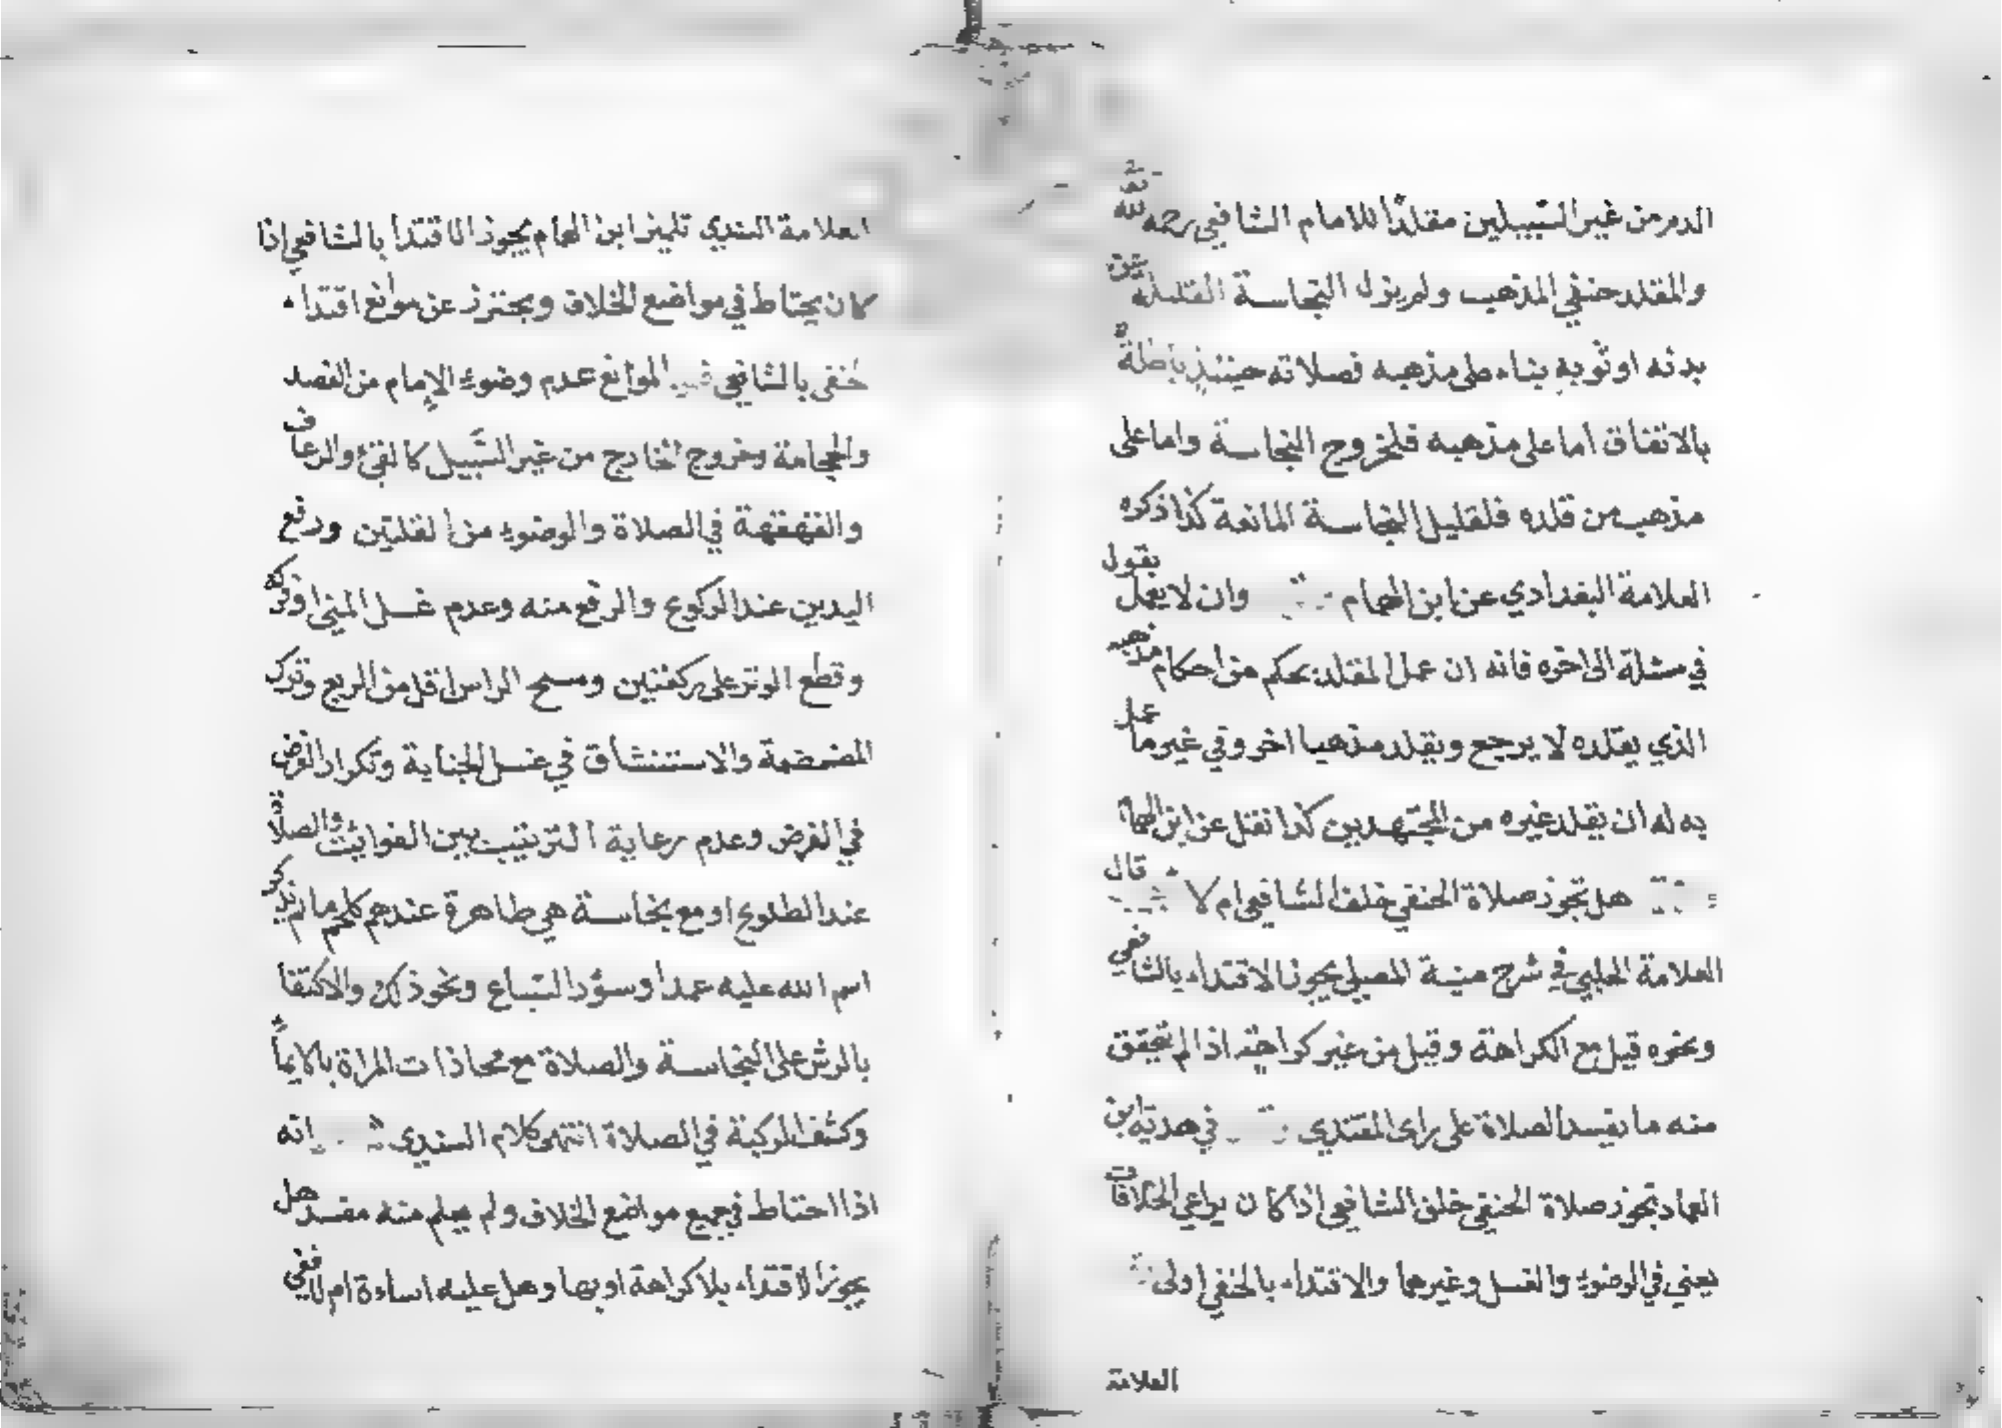 الدم من غير السبيلين مقلدًا للامام الشافعي رحمه الله تعالى
والمقلد حنفي المذهب ولم يزل النجاسة القليلة من
بدنه او ثوبه بناء على مذهبه فصلاته حينئذٍ باطلةٌ
بالاتفاق اما على مذهبه فلخروج النجاسة واما على
مذهب من قلده فلقليل النجاسة المانعة كذا ذكره
العلامة البغدادي عن ابن الهمام وان لا يعمل بقول
في مسئلة الى اخره فانه ان عمل المقلد بحكم من احكام مذهبه
الذي يقلده لا يرجع ويقلد مذهبا اخر وفي غير ما عمل
به له ان يقلد غيره من المجتهدين كذا نقل عن ابن الهمام
هل تجوز صلاة الحنفي خلف الشافعي ام لا قال
العلامة الحلبي في شرح منية المصلي يجوز الاقتداء بالشافعي
ونحوه قيل مع الكراهة وقيل من غير كراهة اذا لم تحقق
منه ما يفسد الصلاة على راى المقتدي في هدية ابن
العماد تجوز صلاة الحنفي خلف الشافعي اذا كان يراعي الخلافات
يعني في الوضوء والغسل وغيرهما والاقتداء بالحنفي اولى
العلامة
العلامة السندي تلميذ ابن الهمام يجوز الاقتدا بالشافعي اذا
كان يحتاط في مواضع الخلاف ويحترز عن موانع اقتداء
حنفى بالشافعي الموانع عدم وضوء الإمام من الفصد
والحجامة وخروج الخارج من غير السَّبيل كالقئ والرعاف
والقهقهة في الصلاة والوضوء من القلتين ورفع
اليدين عند الركوع والرفع منه وعدم غسل المني او فركه
وقطع الوتر على ركعتين ومسح الراس اقل من الربع وترك
المضمضة والاستنشاق في غسل الجنابة وتكرار الفرض
في الفرض وعدم رعاية الترتيب بين الفوائيت والصلاة
عند الطلوع او مع نجاسة هي طاهرة عندهم كلحم ما لم يذكر
اسم الله عليه عمدا وسؤر السّباع ونحو ذلك والاكتفا
بالرش على النجاسة والصلاة مع محاذات المراة بالايماً
وكشف الركبة في الصلاة انتهى كلام السندي انه
اذا احتاط في جميع مواضع الخلاف ولم يعلم منه مفسد هل
يجوز الاقتداء بلا كراهة او بها وهل عليه اساءة ام لا ففي